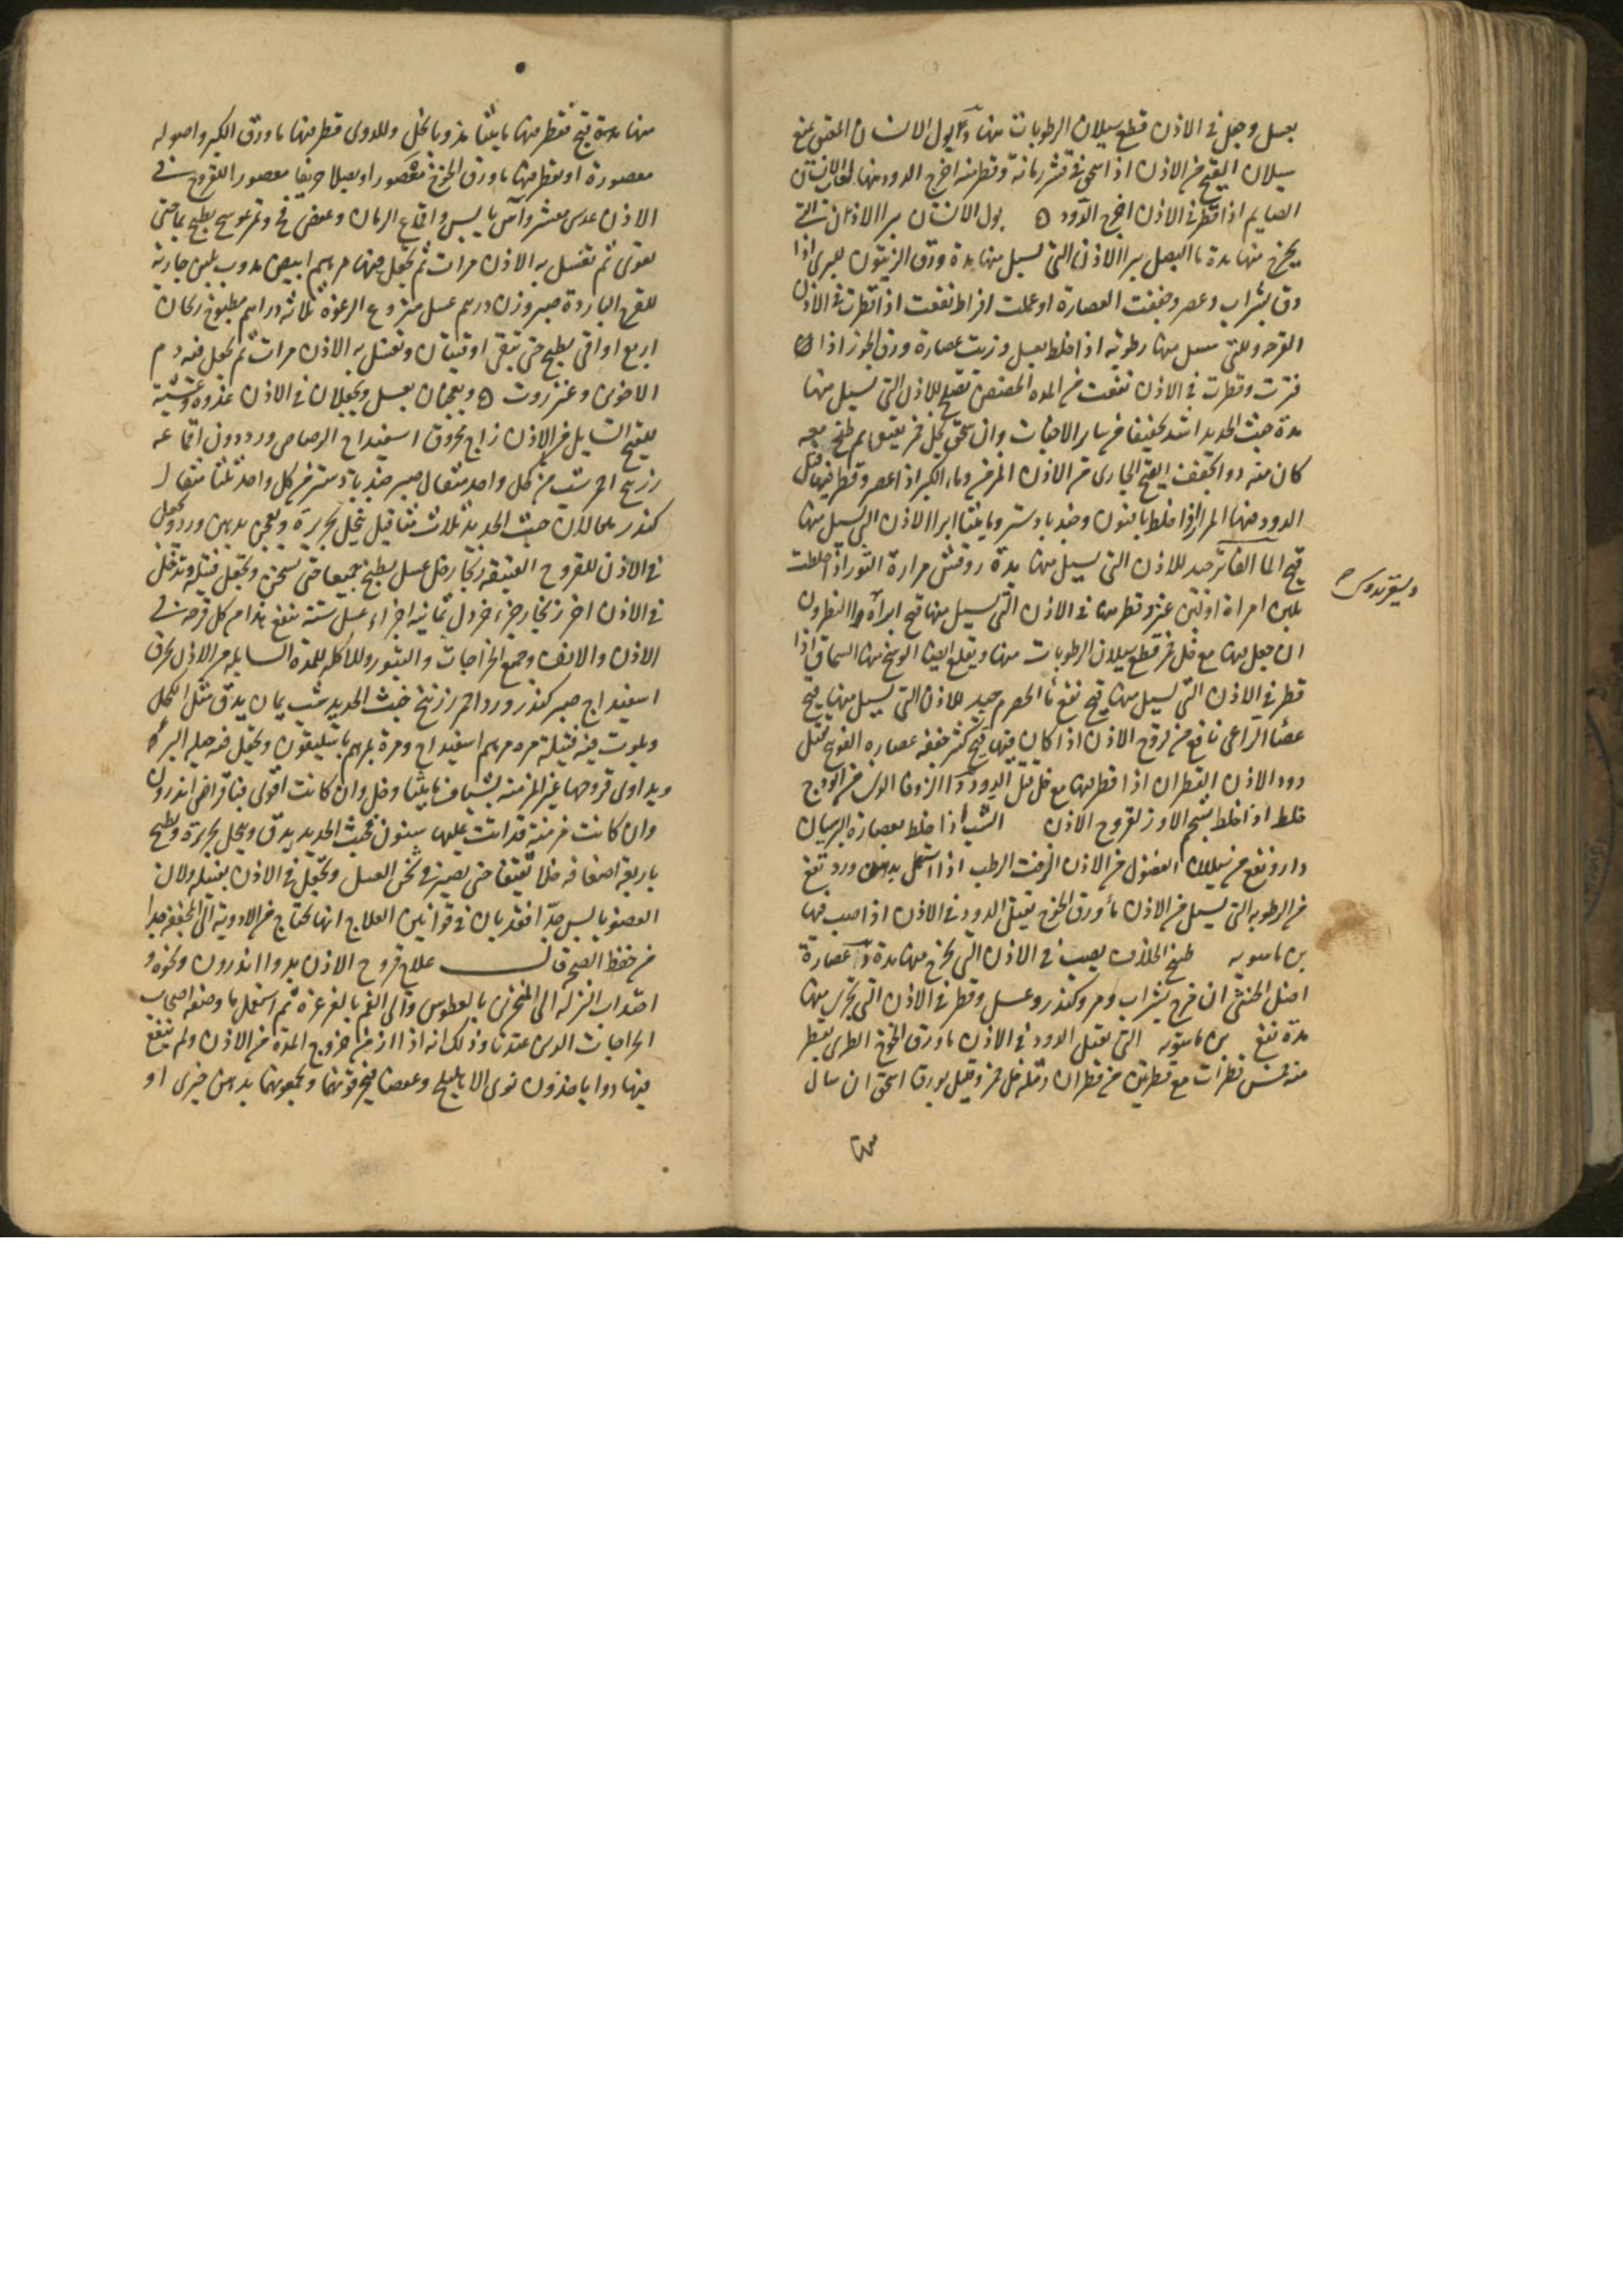 بعسل وجعل في الاذن قطع سيلان الرطوبات منها د بول الانسان المعتق يمنع
سيلان القيح من الاذن اذا اسخن في قشر رمانة وقطر منه اخرج الدود منها لعاب الانسان
الصايم اذا قطر في الاذن اخرج الدود ه بول الانسان يبرا الاذان التي
يخرج منها مدة ما البصل يبرا الاذن التي تسيل منها مدة ورق الزيتون البري اذا
دق بشراب وعصر وجففت العصارة او عملت اقراط نفعت اذا قطرت في الاذن
القرحه وللتي تسيل منها رطوبة اذا خلط بعسل وزيت عصارة ورق الجوز اذا
فترت وقطرت في الاذن نفعت من المده الحضض تصلح للاذن التي تسيل منها
مدة خبث الحديد اشد تجفيفا من ساير الاخباث وان سحق بخل خمر ثقيف ثم طبخ معه
كان منه دوا يجفف القيح الجاري من الاذن المزمن وماء الكبر اذا عصر وقطر فيها قتل
الدود منها المر اذا خلط بافيون وجندبادستر وماميثا ابرا الاذن التي تسيل منها
قيح الما الفاتر جيد للاذن التي تسيل منها مدة روفس مرارة الثور اذا خلطت
وليقريدوس
بلبن امراة او لبن عنز وقطر منها في الاذن التي تسيل منها قيح ابراه د النطرون
ان جعل منها مع خل خمر قطع سيلان الرطوبات منها ويقلع ايضا الوسخ منها السماق اذا
قطر في الاذن التي تسيل منها قيح نفع ما الحصرم جيد للاذن التي تسيل منها قيح
عصا الراعي نافع من قروح الاذن اذا كان فيها قيح كثير جففه عصارة الفوتنج تقتل
دود الاذن القطران اذا قطر فيها مع خل قتل الدود د الزوفا
خلط اذا خلط بشحم الاوز لقروح الاذن الشب اذا خلط بعصارة البرسيان
دارو نفع من سيلان الفضول من الاذن الزفت الرطب اذا استعمل بدهن ورد نفع
من الرطوبه التي تسيل من الاذن ما ورق الخوخ تقتل الدود في الاذن اذا صب فيها
بن ماسويه طبخ الحلازن يصب في الاذن التي يخرج منها مدة د عصارة
اصل الخنثى ان مزج بشراب ومر وكندر وعسل وقطر في الاذن التي تجري منها
مدة نفع بن ماسويه التي تقتل الدود في الاذن ما ورق الخوخ الطري يقطر
منه خمس قطرات مع قطرتين من قطران ومثله خل خمر وقيل بورق اسحق ان سال
منها
منها مدة قيح فقطر فيها ماميثا مذوبا بخل وللدود قطر فيها ما ورق الكبر واصوله
معصورة او يقطر فيها ما ورق الخوخ معصورا او بصلا حريفا معصورا للقروح في
الاذن عدس مقشر وآس يابس واقماع الرمان وعفص فج وثمر عوسج يطبخ بما حتى
يقوى ثم تغسل به الاذن مرات ثم يجعل فيها مرهم ابيض مدوب بلبن جارية
للقرح الباردة صبر وزن درهم عسل منزوع الرغوة ثلاثة دراهم مطبوخ ريحان
اربع اواقي يطبخ حتى يبقى اوقيتان وتغسل به الاذن مرات ثم يجعل فيه دم
الاخوين وعنزروت ه ويعجنان بعسل ويجعلان في الاذن غدوة وعشية
للقيح السايل من الاذن زاج محروق اسفيداج الرصاص ورد دون اقماعه
زرنيخ احمر شب من كل واحد مثقال صبر جندبادستر من كل واحد ثلثا مثقال
كندر خبث الحديد ثلاث مثاقيل ينخل بحريرة ويعجن بدهن ورد ويجعل
في الاذن للقروح العتيقة زنجار خل عسل يطبخ جميعا حتى يسخن ويجعل فتيلة وتدخل
في الاذن اخر زنجار جزء خردل ثمانية اجزاء عسل ستة ينفع هذا من كل قرحة في
الاذن والانف وجميع الخراجات والبثور وللاكله للمدة السايله من الاذن يحرق
اسفيداج صبر كندر ورد احمر زرنيخ خبث الحديد شب يمان يدق مثل الكحل
ويلوث فيه فتيلة مره مرهم اسفيداج ومرة بمرهم باسليقون ويجعل فيه حيلة البرء
ويداوى قروحها غير المزمنه بشياف مايثا وخل وان كانت اقوى فباقراص اندرون
وان كانت مزمنة قد اتت عليها سنون فخبث الحديد يدق وينخل بحريرة ويطبخ
باربعة اضعافه خلا ثقيفا حتى يصير في ثخن العسل ويجعل في الاذن بفتيله ولان
العضو يابس جدا افقد بان في قوانين العلاج انها تحتاج من الادوية الى المجففة جدا
من حفظ الصحة قال علاج قروح الاذن بدواء اندرون ونحوه و
اجتداب النزله الى المنخرين بالعطوس والى الفم بالغرغرة ثم استعمل ما وصفه اصحاب
الجراحات الدس عندنا وذلك انه اذا ازمن خروج المدة من الاذن ولم ينفع
فيها دوا ياخذون نوى الاهليلج وعفصا فيحرقونها ويجمعونها بدهن خيرى او